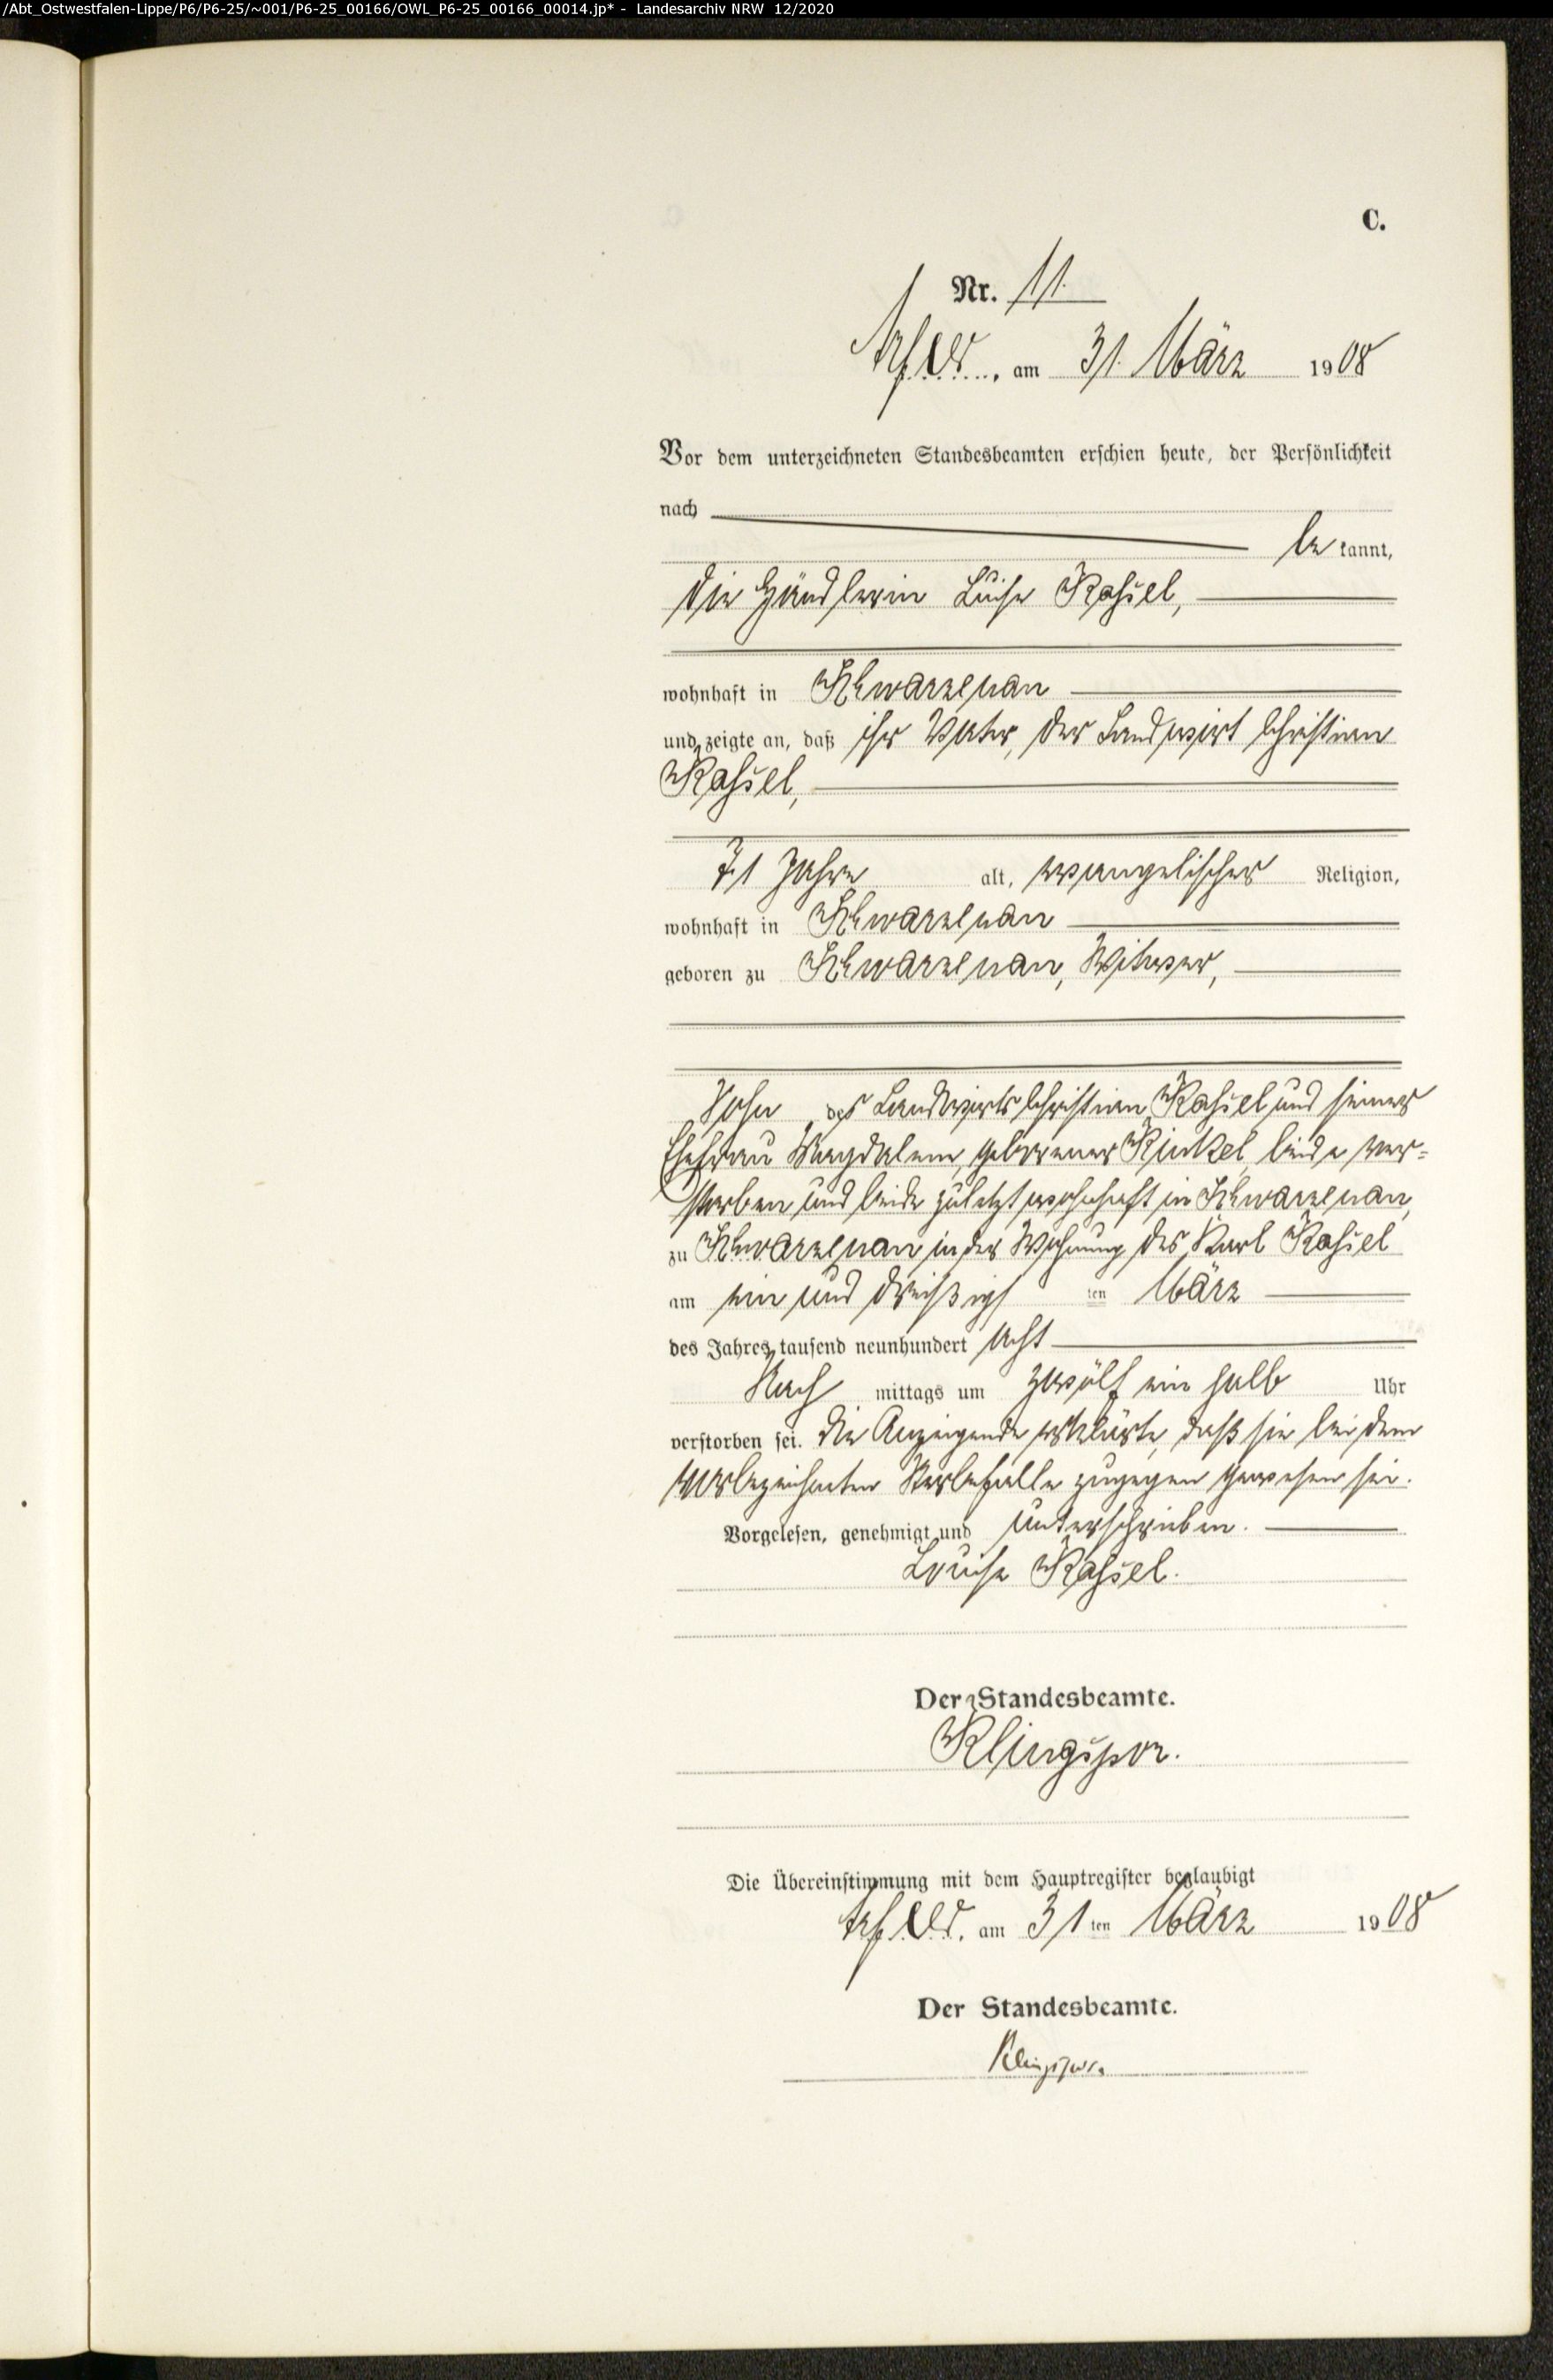 /Abt_Ostwestfalen-Lippe/P6/P6-25/~001/P6-25_00166/OWL_P6-25_00166_00014.jp* - Landesarchiv NRW 12/2020
C.
Nr. 11.
Arfeld, am 31. März 1908
Vor dem unterzeichneten Standesbeamten erschien heute, der Persönlichkeit
nach
be kannt,
die Händlerin Luise Kassel,
wohnhaft in Schwarzenau
und zeigte an, daß ihr Vater, der Landwirt Christian
Kassel,
71 Jahre alt, evangelischer Religion,
wohnhaft in Schwarzenau
geboren zu Schwarzenau, Witwer,
Sohn des Landwirts Christian Kassel und seiner
Ehefrau Magdalene, geborener Kinkel, beide ver-
storben und beide zuletzt wohnhaft in Schwarzenau,
zu Schwarzenau in der Wohnung des Karl Kassel
am ein und dreißigsten ten März
des Jahres tausend neunhundert acht
Nach mittags um zwölf ein halb Uhr
verstorben sei. Die Anzeigende erklärte, daß sie bei dem
vorbezeichneten Sterbefalle zugegen gewesen sei.
Vorgelesen, genehmigt und unterschrieben.
Louise Kassel.
Der Standesbeamte.
Klingspor.
Die Übereinstimmung mit dem Hauptregister beglaubigt
Arfeld, am 31 ten März 1908
Der Standesbeamte.
Klingspor.